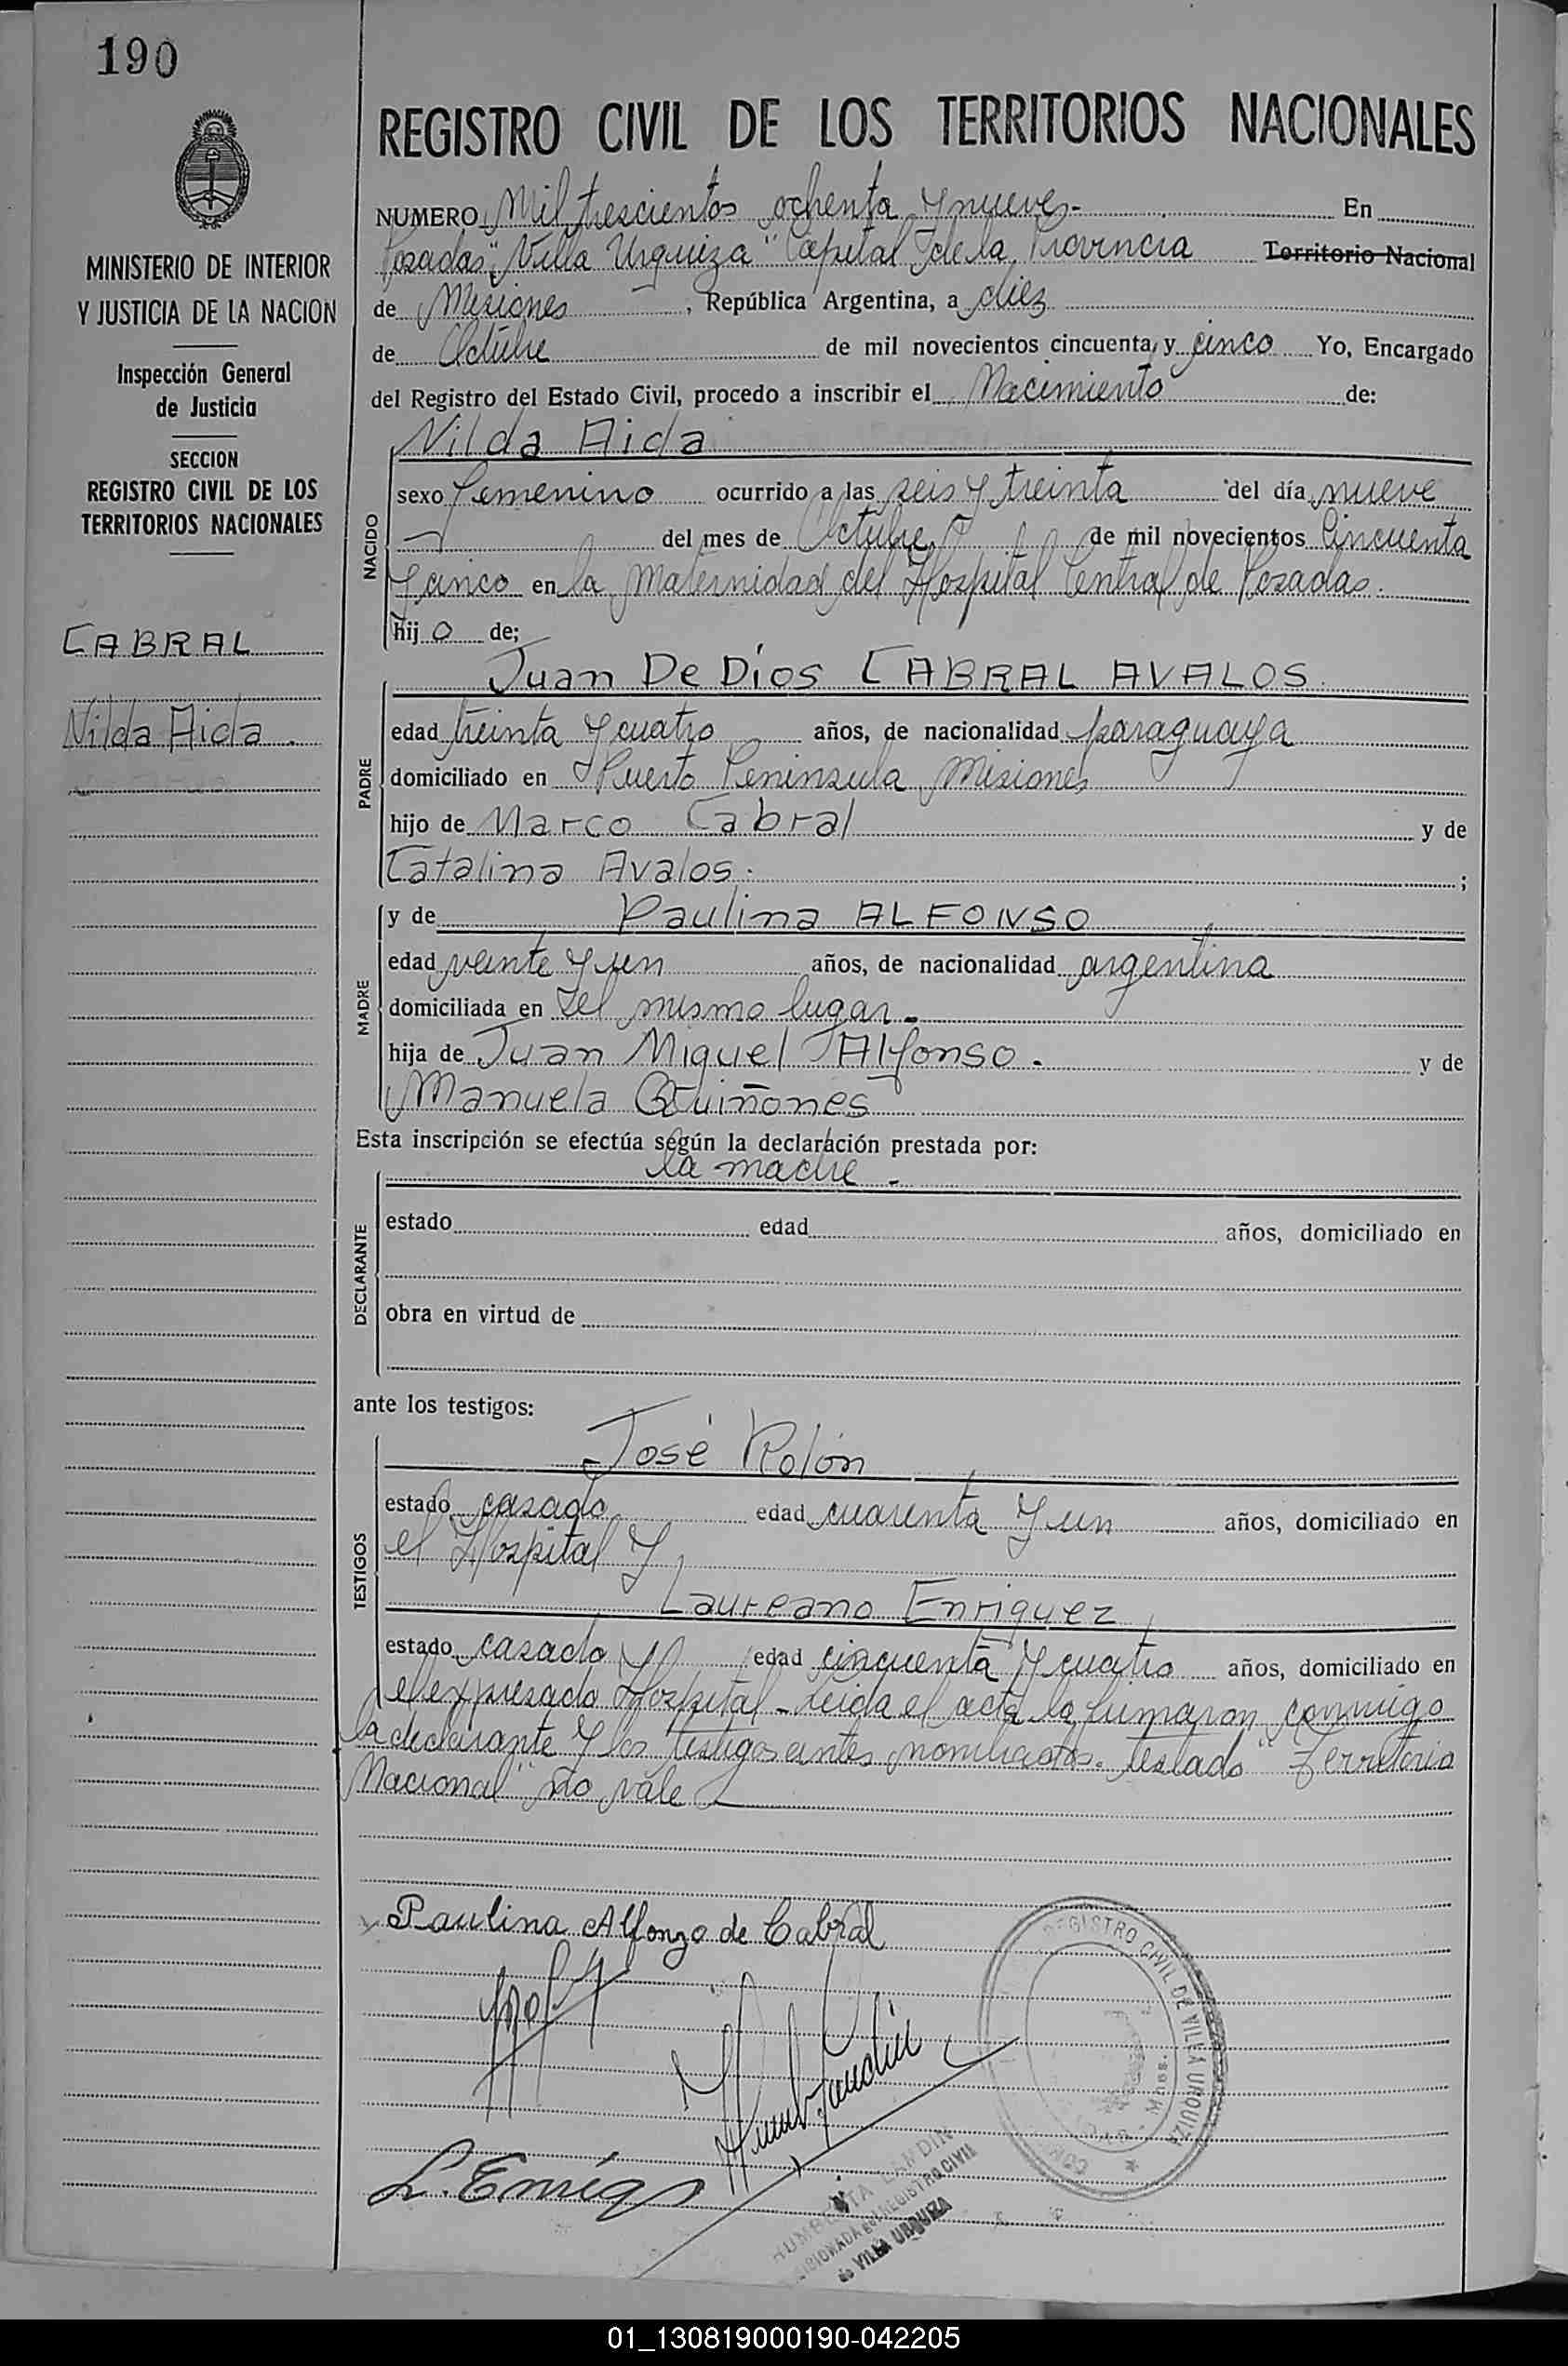 190
MINISTERIO DE INTERIOR
Y JUSTICIA DE LA NACION
Inspección General
de Justicia
SECCION
REGISTRO CIVIL DE LOS
TERRITORIOS NACIONALES
CABRAL
Nilda Aida.
REGISTRO CIVIL DE LOS TERRITORIOS NACIONALES
NUMERO Mil trescientos ochenta y nueve.- En
Posadas "Villa Urquiza" Capital de la Provincia Territorio Nacional
de Misiones, República Argentina, a diez
de Octubre de mil novecientos cincuenta y cinco Yo, Encargado
del Registro del Estado Civil, procedo a inscribir el Nacimiento de:
NACIDO
Nilda Aida
sexo femenino ocurrido a las seis y treinta del día nueve
del mes de Octubre de mil novecientos Cincuenta
y cinco en la maternidad del Hospital Central de Posadas.
hij o de;
PADRE
Juan De Dios CABRAL AVALOS.
edad treinta y cuatro años, de nacionalidad paraguaya
domiciliado en Puerto Peninsula Misiones
hijo de Marco Cabral y de
Catalina Avalos. ;
MADRE
y de Paulina ALFONSO
edad veinte y un años, de nacionalidad argentina
domiciliada en el mismo lugar.-
hija de Juan Miguel Alfonso. y de
Manuela Quiñones
Esta inscripción se efectúa según la declaración prestada por:
la madre.-
DECLARANTE
estado edad años, domiciliado en
obra en virtud de
ante los testigos:
TESTIGOS
José Rolón
estado casado edad cuarenta y un años, domiciliado en
el Hospital y
Laureano Enriquez
estado casado edad cincuenta y cuatro años, domiciliado en
el expresado Hospital - Leida el acta la firmaron conmigo
la declarante y los testigos antes nombrados. Testado "Territorio
Nacional" no vale
Paulina Alfonzo de Cabral
L. Enriqz
REGISTRO CIVIL DE VILLA URQUIZA
Mnes.
LANDIN
REGISTRO CIVIL
de VILLA URQUIZA
01_130819000190-042205